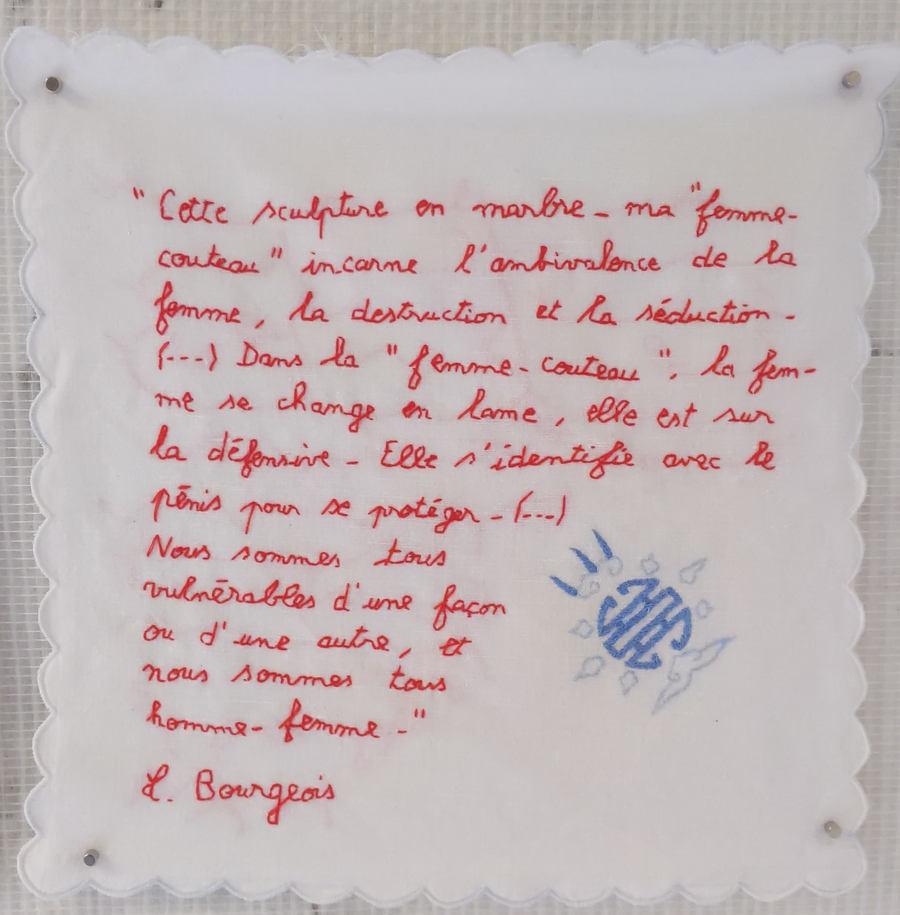 " Cette sculpture en marbre - ma "femme-
couteau" incarne l'ambivalence de la
femme, la destruction et la séduction -
(---) Dans la "femme-couteau", la fem-
me se change en lame, elle est sur
la défensive - Elle s'identifie avec le
pénis pour se protéger - (---)
Nous sommes tous
vulnérables d'une façon
ou d'une autre, et
nous sommes tous
homme-femme -"
L. Bourgeois